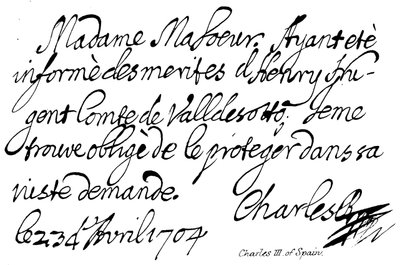 Madame Masoeur. Ayant etè
informè des merites d Henry Hu-
gent Comte de Valldesotto, Jeme
trouve obligè de le proteger dans sa
iuste demande.
CharlesR
le 23 d'Avril 1704
Charles III. of Spain.